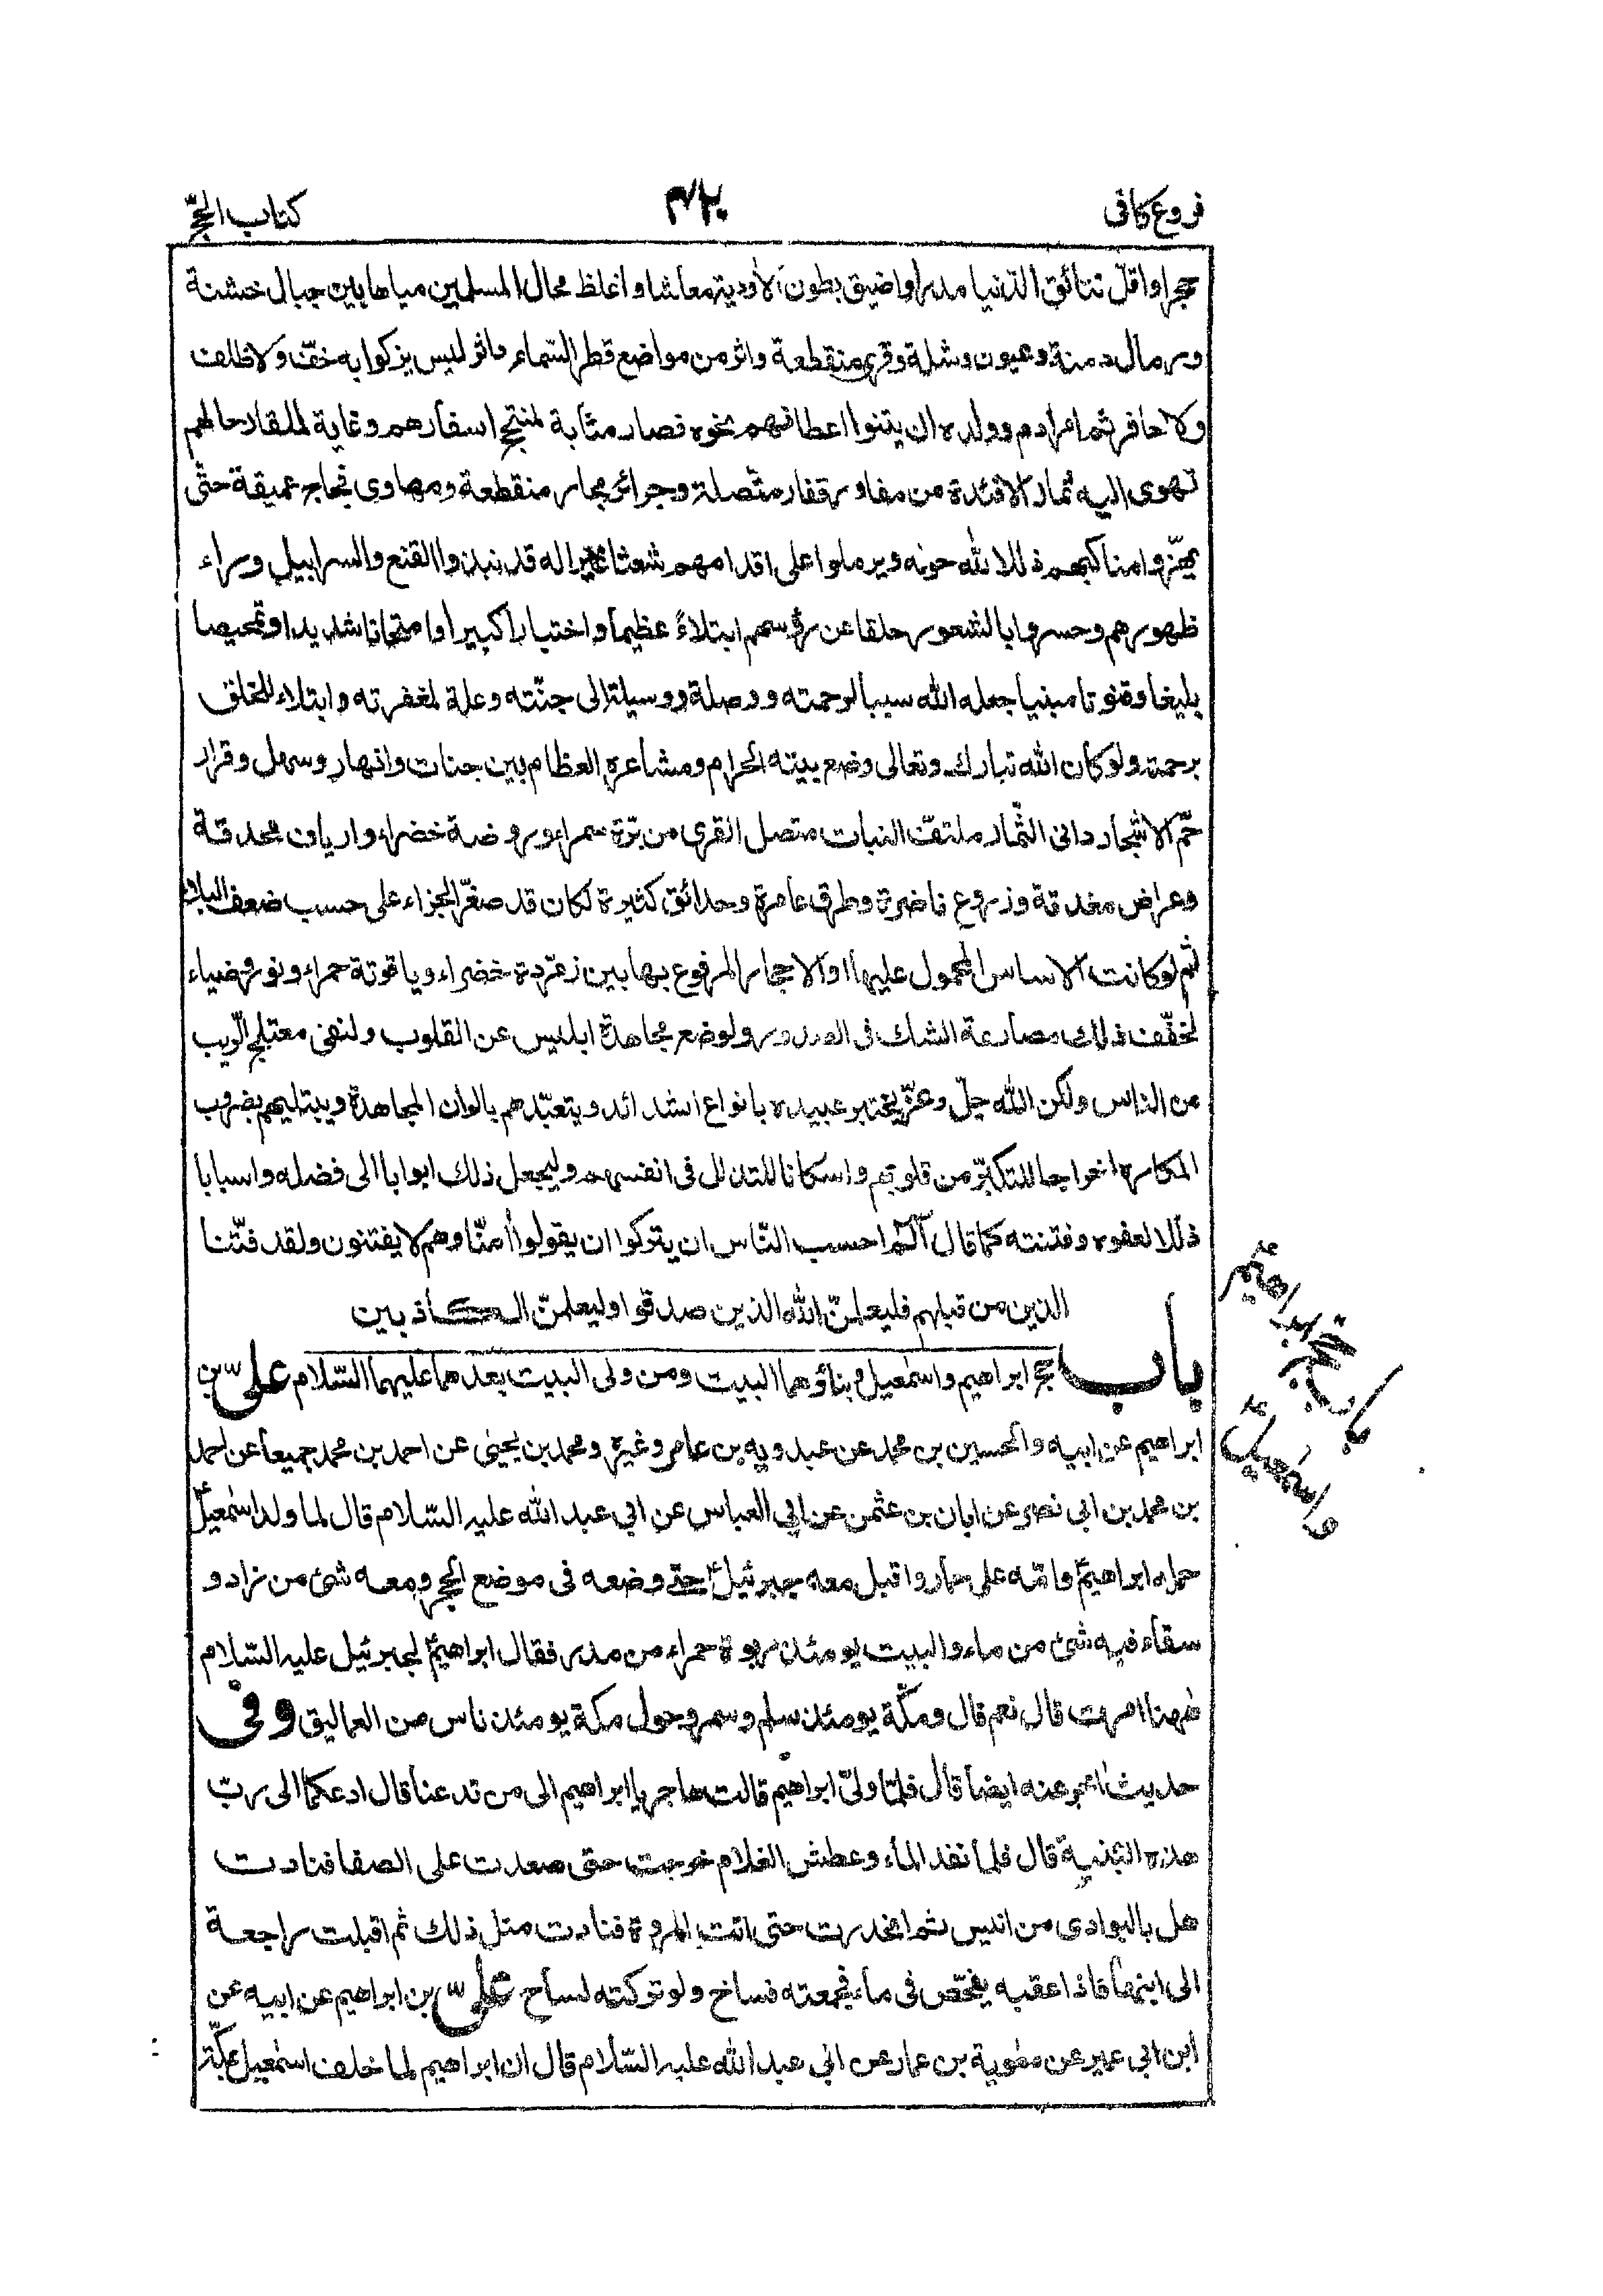 فروع كافى
٤٢٠
كتاب الحجّ
حجرا واقلّ نتائق الدّنيا مدرا واضيق بطون الاودية معاشا واغلظ محال المسلمين مياها بين جبال خشنة
ورمال دمنة وعيون وشلة وقرى منقطعة واثر من مواضع قطر السّماء داثر ليس يزكوا به خفّ ولا ظلف
ولا حافر ثم امر ادم وولده ان يثنوا اعطافهم نحوه فصار مثابة لمنتجع اسفارهم وغاية لملقا رحالهم
تهوى اليه ثمار الافئدة من مفاوز قفار متّصلة وجزائر بحار منقطعة ومهاوى فجاج عميقة حتّى
يهزّوا مناكبهم ذللا لله حوله ويرملوا على اقدامهم شعثا غبرا له قد نبذوا القنع والسرابيل وراء
ظهورهم وحسروا بالشعور حلقا عن رؤسهم ابتلاءً عظيماً واختبارا كبيراً وامتحانا شديدا وتمحيصا
بليغا وقنوتا مبنيا جعله الله سببا لرحمته ووصلة ووسيلة الى جنّته وعلة لمغفرته وابتلاء للخلق
برحمته ولو كان الله تبارك وتعالى وضع بيته الحرام ومشاعره العظام بين جنات وانهار وسهل وقرار
جّم الاشجار دانى الثّمار ملتفّ النبات متصل القرى من برّة سمراء وروضة خضراء وارياف محدقة
وعراض مغدقة وزروع ناضرة وطرق عامرة وحدائق كثيرة لكان قد صغّر الجزاء على حسب ضعف البلاء
ثم لو كانت الاساس المحمول عليها او الاحجار المرفوع بها بين زمرّدة خضراء وياقوتة حمراء ونور وضياء
لخفّف ذلك مصارعة الشك فى الصدور ولوضع مجاهدة ابليس عن القلوب ولنفى معتلج الرّيب
من الناس ولكن الله جلّ وعزّ يختبر عبيده بانواع الشدائد ويتعبّدهم بالوان المجاهدة ويبتليهم بضروب
المكاره اخراجا للتكبّر من قلوبهم واسكانا للتذلل فى انفسهم وليجعل ذلك ابوابا الى فضله واسبابا
ذللا لعفوه وفتنته كما قال آلٓمٓ احسب النّاس ان يتركوا ان يقولوا أمنّا وهم لا يفتنون ولقد فتّنا
الذين من قبلهم فليعلمنّ الله الذين صدقوا وليعلمنّ الكاذبين
باب حج ابراهيم واسمعيل وبناؤهما البيت ومن ولى البيت بعدهما عليهما السّلام علىّ بن
ابراهيم عن ابيه والحسين بن محمد عن عبدويه بن عامر وغيره ومحمد بن يحيى عن احمد بن محمد جميعا عن احمد
بن محمد بن ابى نصر عن ابان بن عثمن عن ابى العباس عن ابي عبد الله عليه السّلام قال لما ولد اسمعيل
حمله ابراهيم وامّه على حمار واقبل معه جبرئيل حتّى وضعه فى موضع الحجر ومعه شئ من زاد و
سقاء فيه شئ من ماء والبيت يومئذ ربوة حمراء من مدر فقال ابراهيم لجبرئيل عليه السّلام
ههنا امرت قال نعم قال ومكّة يومئذ سلم وسمر وحول مكة يومئذ ناس من العماليق وفى
حديث اخر عنه ايضا قال فلمّا ولّى ابراهيم قالت هاجر يا ابراهيم الى من تدعنا قال ادعكما الى ربّ
هذه البنية قال فلما نفد الماء وعطش الغلام خرجت حتى صعدت على الصفا فنادت
هل بالبوادى من انيس ثم انحدرت حتى اتت المروة فنادت مثل ذلك ثم اقبلت راجعة
الى ابنها فاذا عقبه يفحّص فى ماء فجمعته فساخ ولو تركته لساح علىّ بن ابراهيم عن ابيه عن
ابن ابي عمير عن معوية بن عمار عن ابي عبد الله عليه السّلام قال ان ابراهيم لما خلف اسمعيل بمكّة
باب حج ابراهيم
واسمعيل